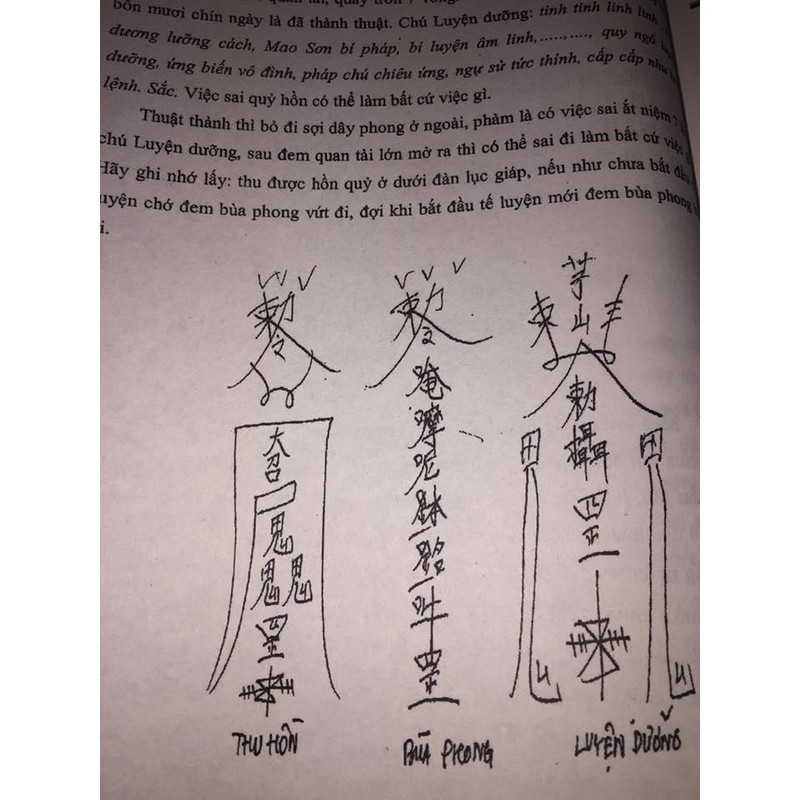 bốn mươi chín ngày là đã thành thuật. Chú Luyện dưỡng: tinh tinh linh linh
dương lưỡng cách, Mao Sơn bí pháp, bí luyện âm linh,.........., quy ngô
dưỡng, ứng biến vô đình, pháp chú chiêu ứng, ngự sử tức thính, cấp cấp như
lệnh. Sắc. Việc sai quỷ hồn có thể làm bất cứ việc gì.
Thuật thành thì bỏ đi sợi dây phong ở ngoài, phàm là có việc sai ắt niệm 7
chú Luyện dưỡng, sau đem quan tài lớn mở ra thì có thể sai đi làm bất cứ việc
Hãy ghi nhớ lấy: thu được hồn quỷ ở dưới đàn lục giáp, nếu như chưa bắt đầu
uyện chớ đem bùa phong vứt đi, đợi khi bắt đầu tế luyện mới đem bùa phong
i.
勅令
大召
鬼
鬼鬼
罡
THU HỒN
勅令
唵
摩
呢
罡
BÙA PHONG
茅山
勅
攝
罡
LUYỆN DƯỠNG